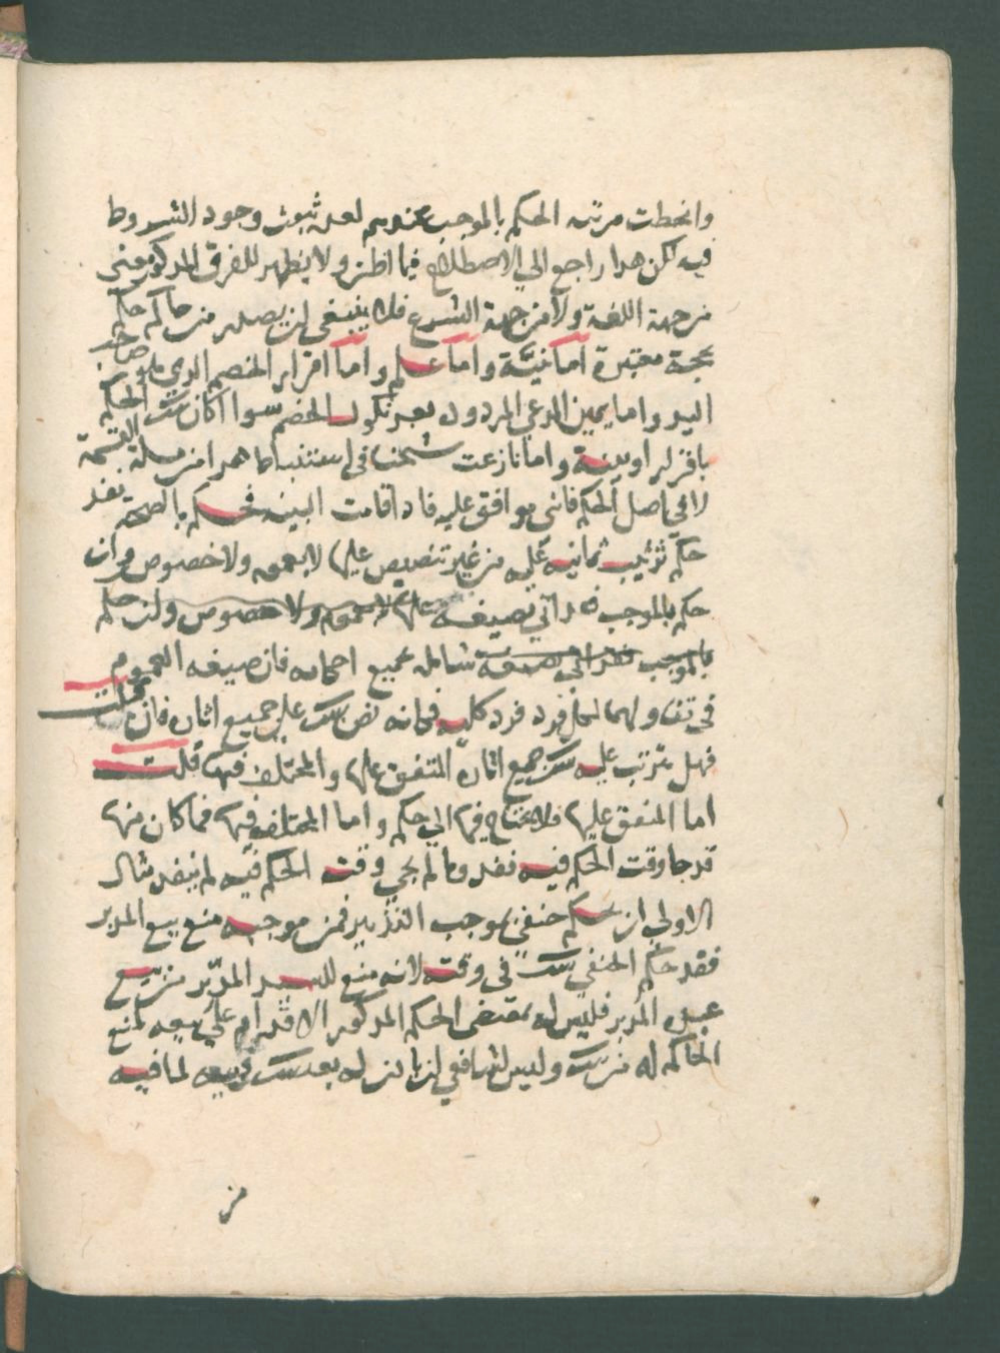 وانحطت مرتبه الحكم بالموجب عندهم لعدم ثبوت وجود الشروط
فيه لكن هدا راجع الي الاصطلاح فيما اظن ولا يظهر للفرق المدكور معنى
من جهة اللغة ولا من جهة الشرع فلا ينبغي ان يصدر من حاكم حكم
بحجة معتبرة اما بينة واما علم واما اقرار الخصم الدي هو صاحب
اليد واما يمين المدعي المردود بعد نكول الخصم سوا اكان الحكم
باقرار او بينة واما نازعت شيخنا في استنباط هدا من مسلة القسمة
لا في اصل الحكم فانني موافق عليه فادا قامت البينه فحكم بالصحة نفد
حكم من غير تنصيص عليها لا بعموم ولا خصوص وان
حكم بالموجب فقد اتي بصيغة عليها لا بعموم ولا خصوص وان حكم
بالموجب فقد اتي بصيغة شامله لجميع احكامه فان صيغه العموم
في تناولها لكل فرد فرد فكانه نص على جميع اثاره فان قلت
فهل يترتب عليه جميع اثاره المتفق عليها والمختلف فيها قلت
اما المتفق عليها فلا يحتاج فيها الي حكم واما المختلف فيها فما كان منها
قد جا وقت الحكم فيه نفد وما لم يجي وقت الحكم فيه لم ينفد مثال
الاولي ان يحكم حنفي بموجب التدبير فمن موجبه منع بيع المدبر
فقد حكم الحنفي في وقته لانه منع للسيد المدبر من بيع
عبده المدبر فليس له بمقتضى الحكم المدكور الاقدام علي بيعه لمنع
الحاكم له من وليس لشافعي ان يادن له بعد في بيعه لما فيه
من